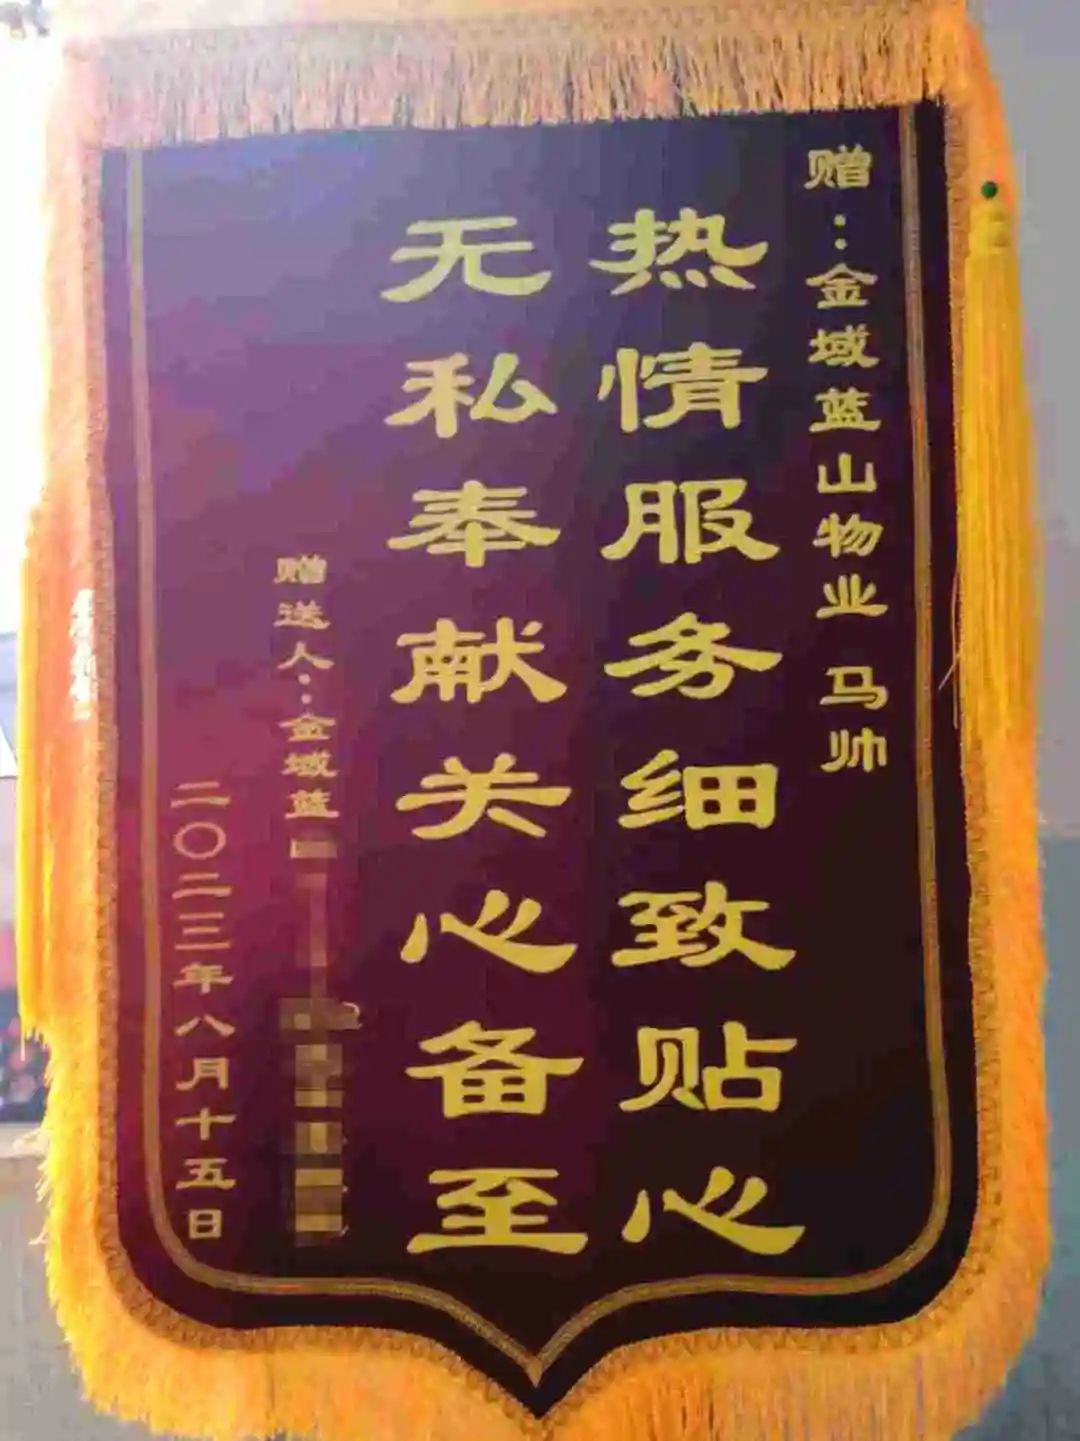 赠：金域蓝山物业 马帅
热情服务细致贴心
无私奉献关心备至
赠送人：金域蓝
二〇二三年八月十五日